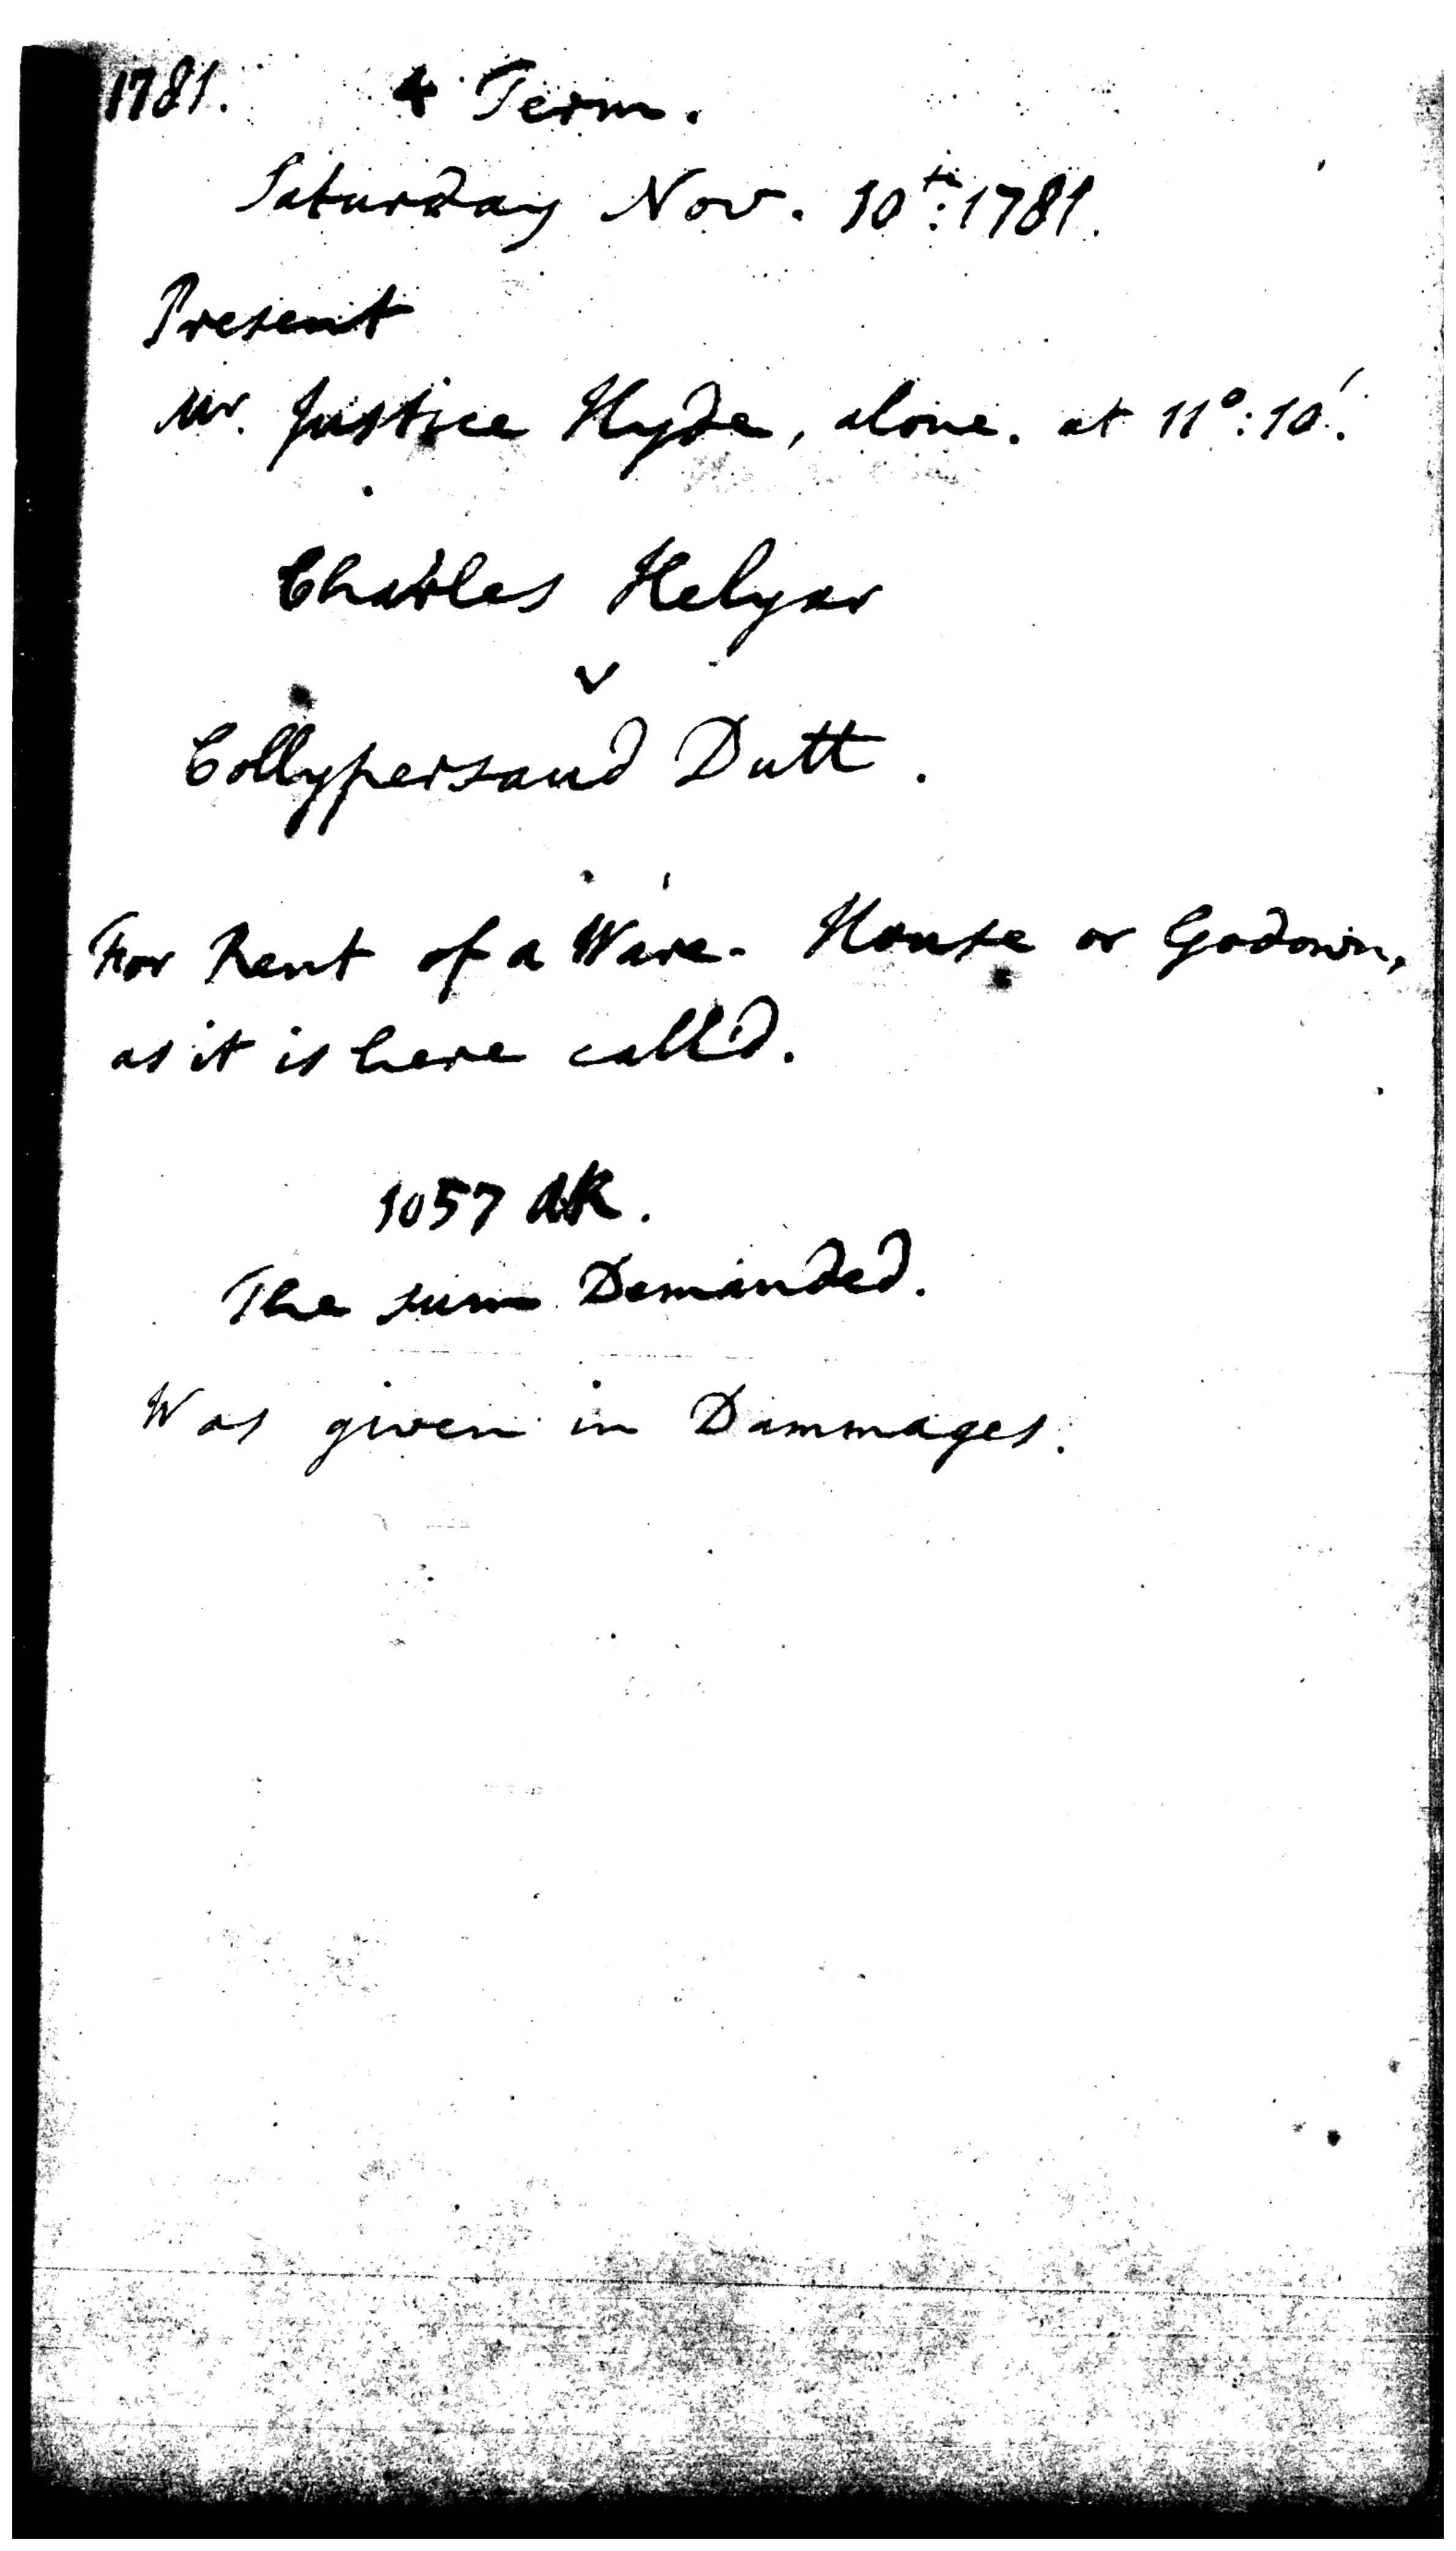 1781. 4 Term.
Saturday Nov. 10th: 1781.
Present
Mr. Justice Hyde, alone. at 11°: 10'.
Charles Helyar
v
Collypersaud Dutt.
For Rent of a Ware-House or Godown,
as it is here call'd.
1057 AR.
The sum Demanded.
Was given in Dammages.